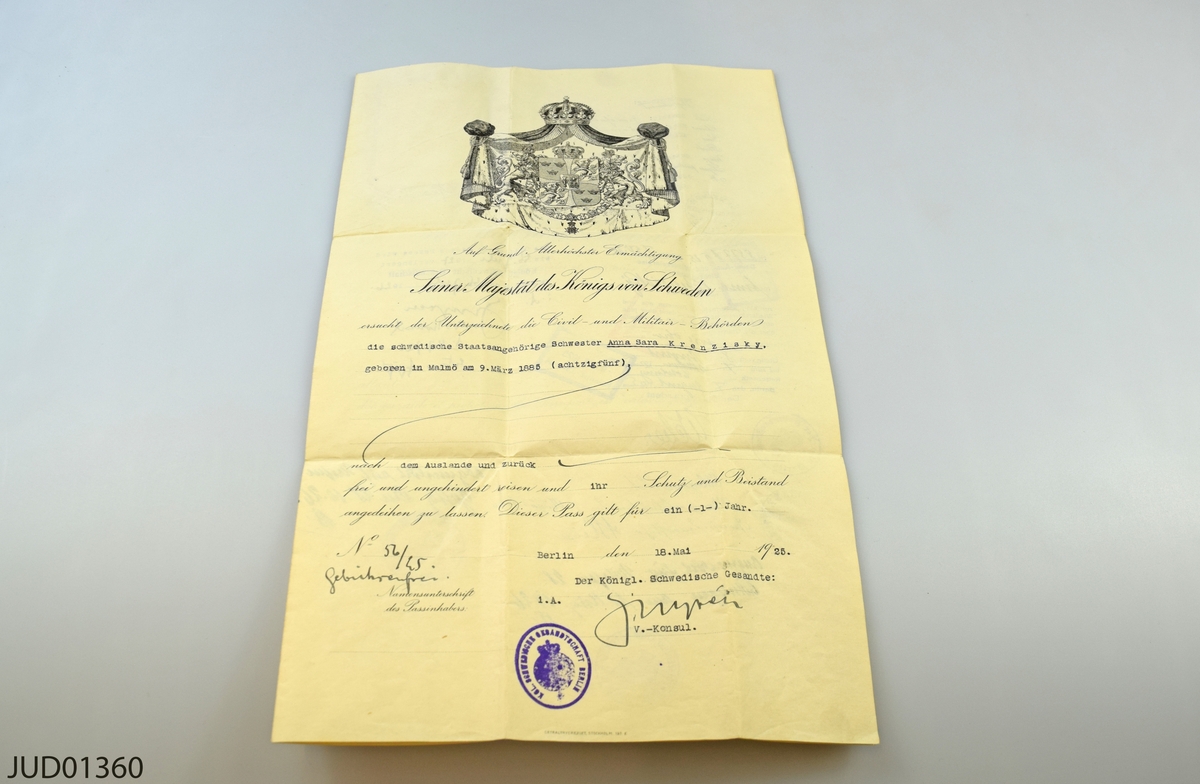 Auf Grund Allerhöchster Ermächtigung
Seiner Majestät des Königs von Schweden
ersucht der Unterzeichnete die Civil- und Militair-Behörden
die schwedische Staatsangehörige Schwester Anna Sara Krenzisky,
geboren in Malmö am 9.März 1885 (achtzigfünf),
nach dem Auslande und zurück
frei und ungehindert reisen und ihr Schutz und Beistand
angedeihen zu lassen. Dieser Pass gilt für ein (-1-) Jahr.
Nº 56/25.
Gebührenfrei.
Berlin den 18.Mai 1925.
Der Königl. Schwedische Gesandte:
Namensunterschrift
des Passinhabers
i.A.
V.-Konsul.
KGL. SCHWEDISCHE GESANDTSCHAFT BERLIN
JUD01360